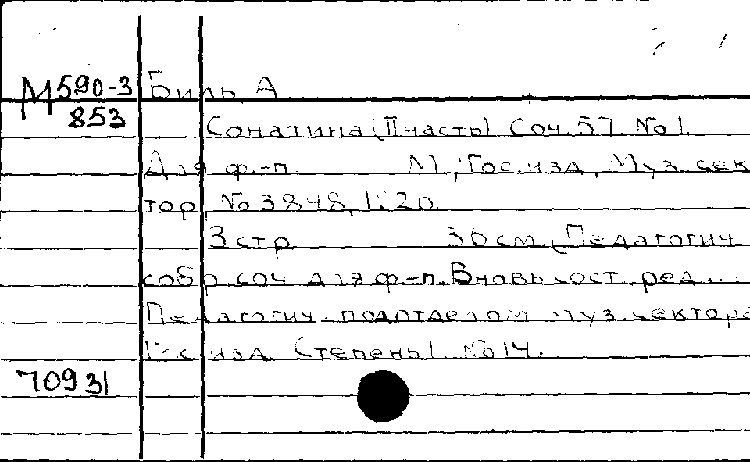 М 590-3 Биль А
853
Сонатина (II часть) Соч. 57 № 1.
Для ф.-п. М., Гос. изд, Муз. сек
тор, № 3848,
3 стр 36 см. (Педагогич
собр соч для ф-п. Вновь ост. ред...
Педагогич. подотделом муз. сектора
Гос изд. Степень I № 14.
70931